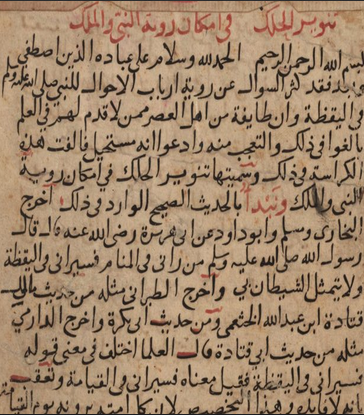 تنوير الحلك في امكان روية النبي والملك
بسم الله الرحمن الرحيم الحمد لله وسلام على عباده الذين اصطفى
فقد كثر السوال عن روية ارباب الاحوال للنبي صلى الله عليه وسلم
في اليقظة وان طايفة من اهل العصر ممن لا قدم لهم في العلم
بالغوا في ذلك والتعجب منه وادعوا انه مستحيل فالفت هذه
الكراسة في ذلك وسميتها تنوير الحلك في امكان روية
النبي والملك ونبدا بالحديث الصحيح الوارد في ذلك اخرج
البخاري ومسلم وابو داود عن ابي هريرة رضي الله عنه قال قال
رسول الله صلى الله عليه وسلم من راني في المنام فسيراني في اليقظة
ولا يتمثل الشيطان بي واخرج الطبراني مثله من حديث مالك بن
عبد الله الخثعمي ومن حديث ابي بكرة واخرج الدارمي
مثله من حديث ابي قتادة قال العلما اختلف في معنى قوله
فسيراني في اليقظة فقيل معناه فسيراني في القيامة وتعقب
بانه لا فايدة في هذا التخصيص لان كل امته يرونه يوم القيامة